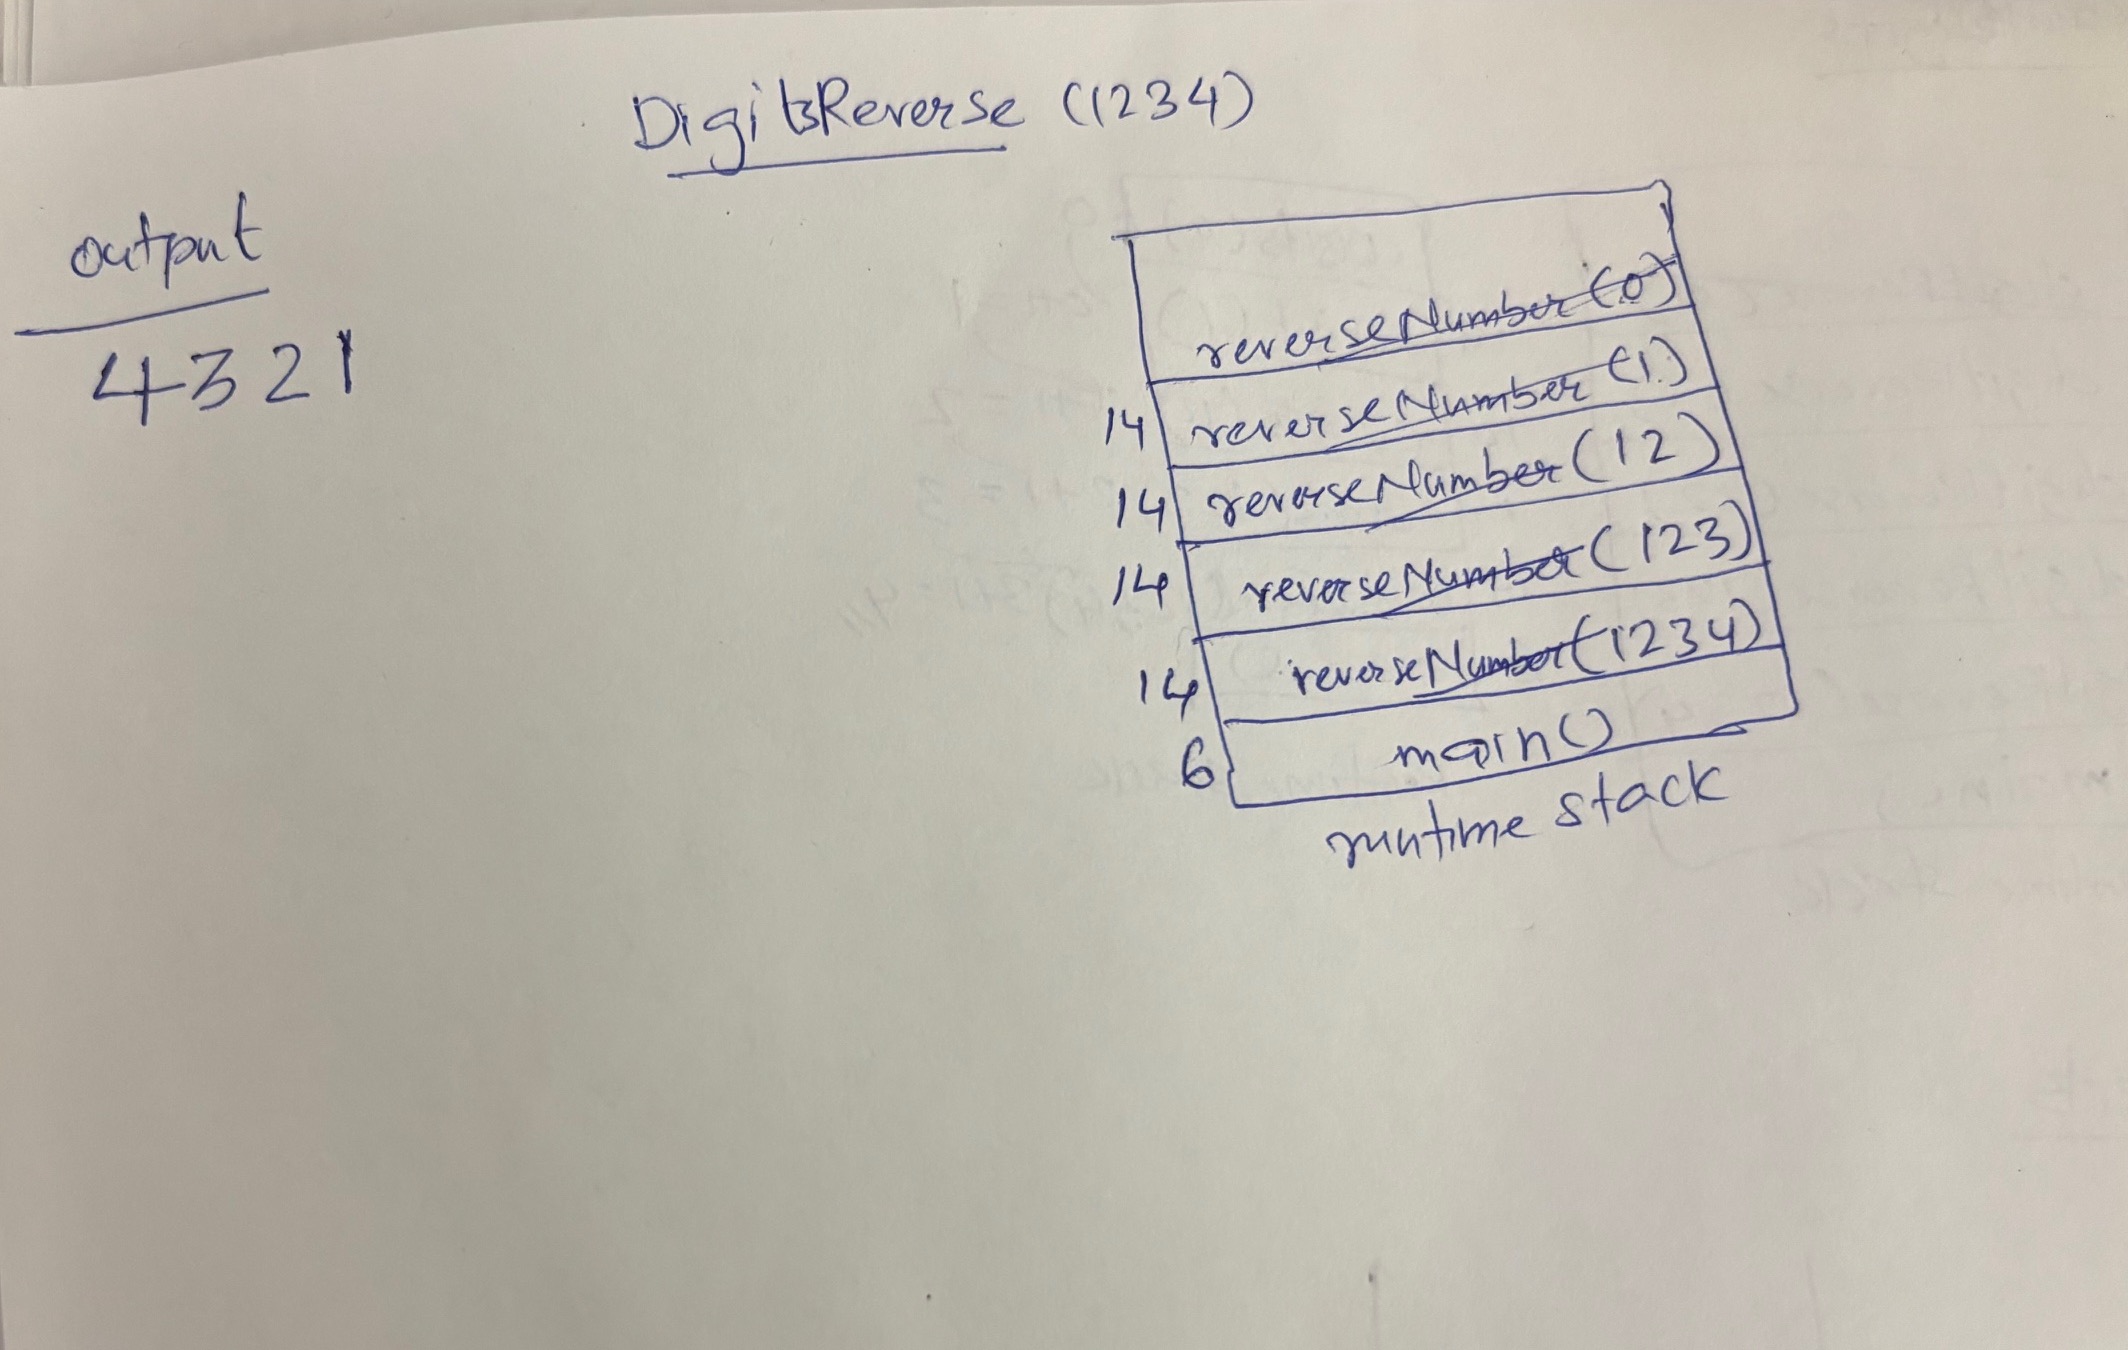 DigitsReverse (1234)
output
4321
reverseNumber(0)
14 reverseNumber(1)
14 reverseNumber(12)
14 reverseNumber(123)
14 reverseNumber(1234)
6 main()
runtime stack